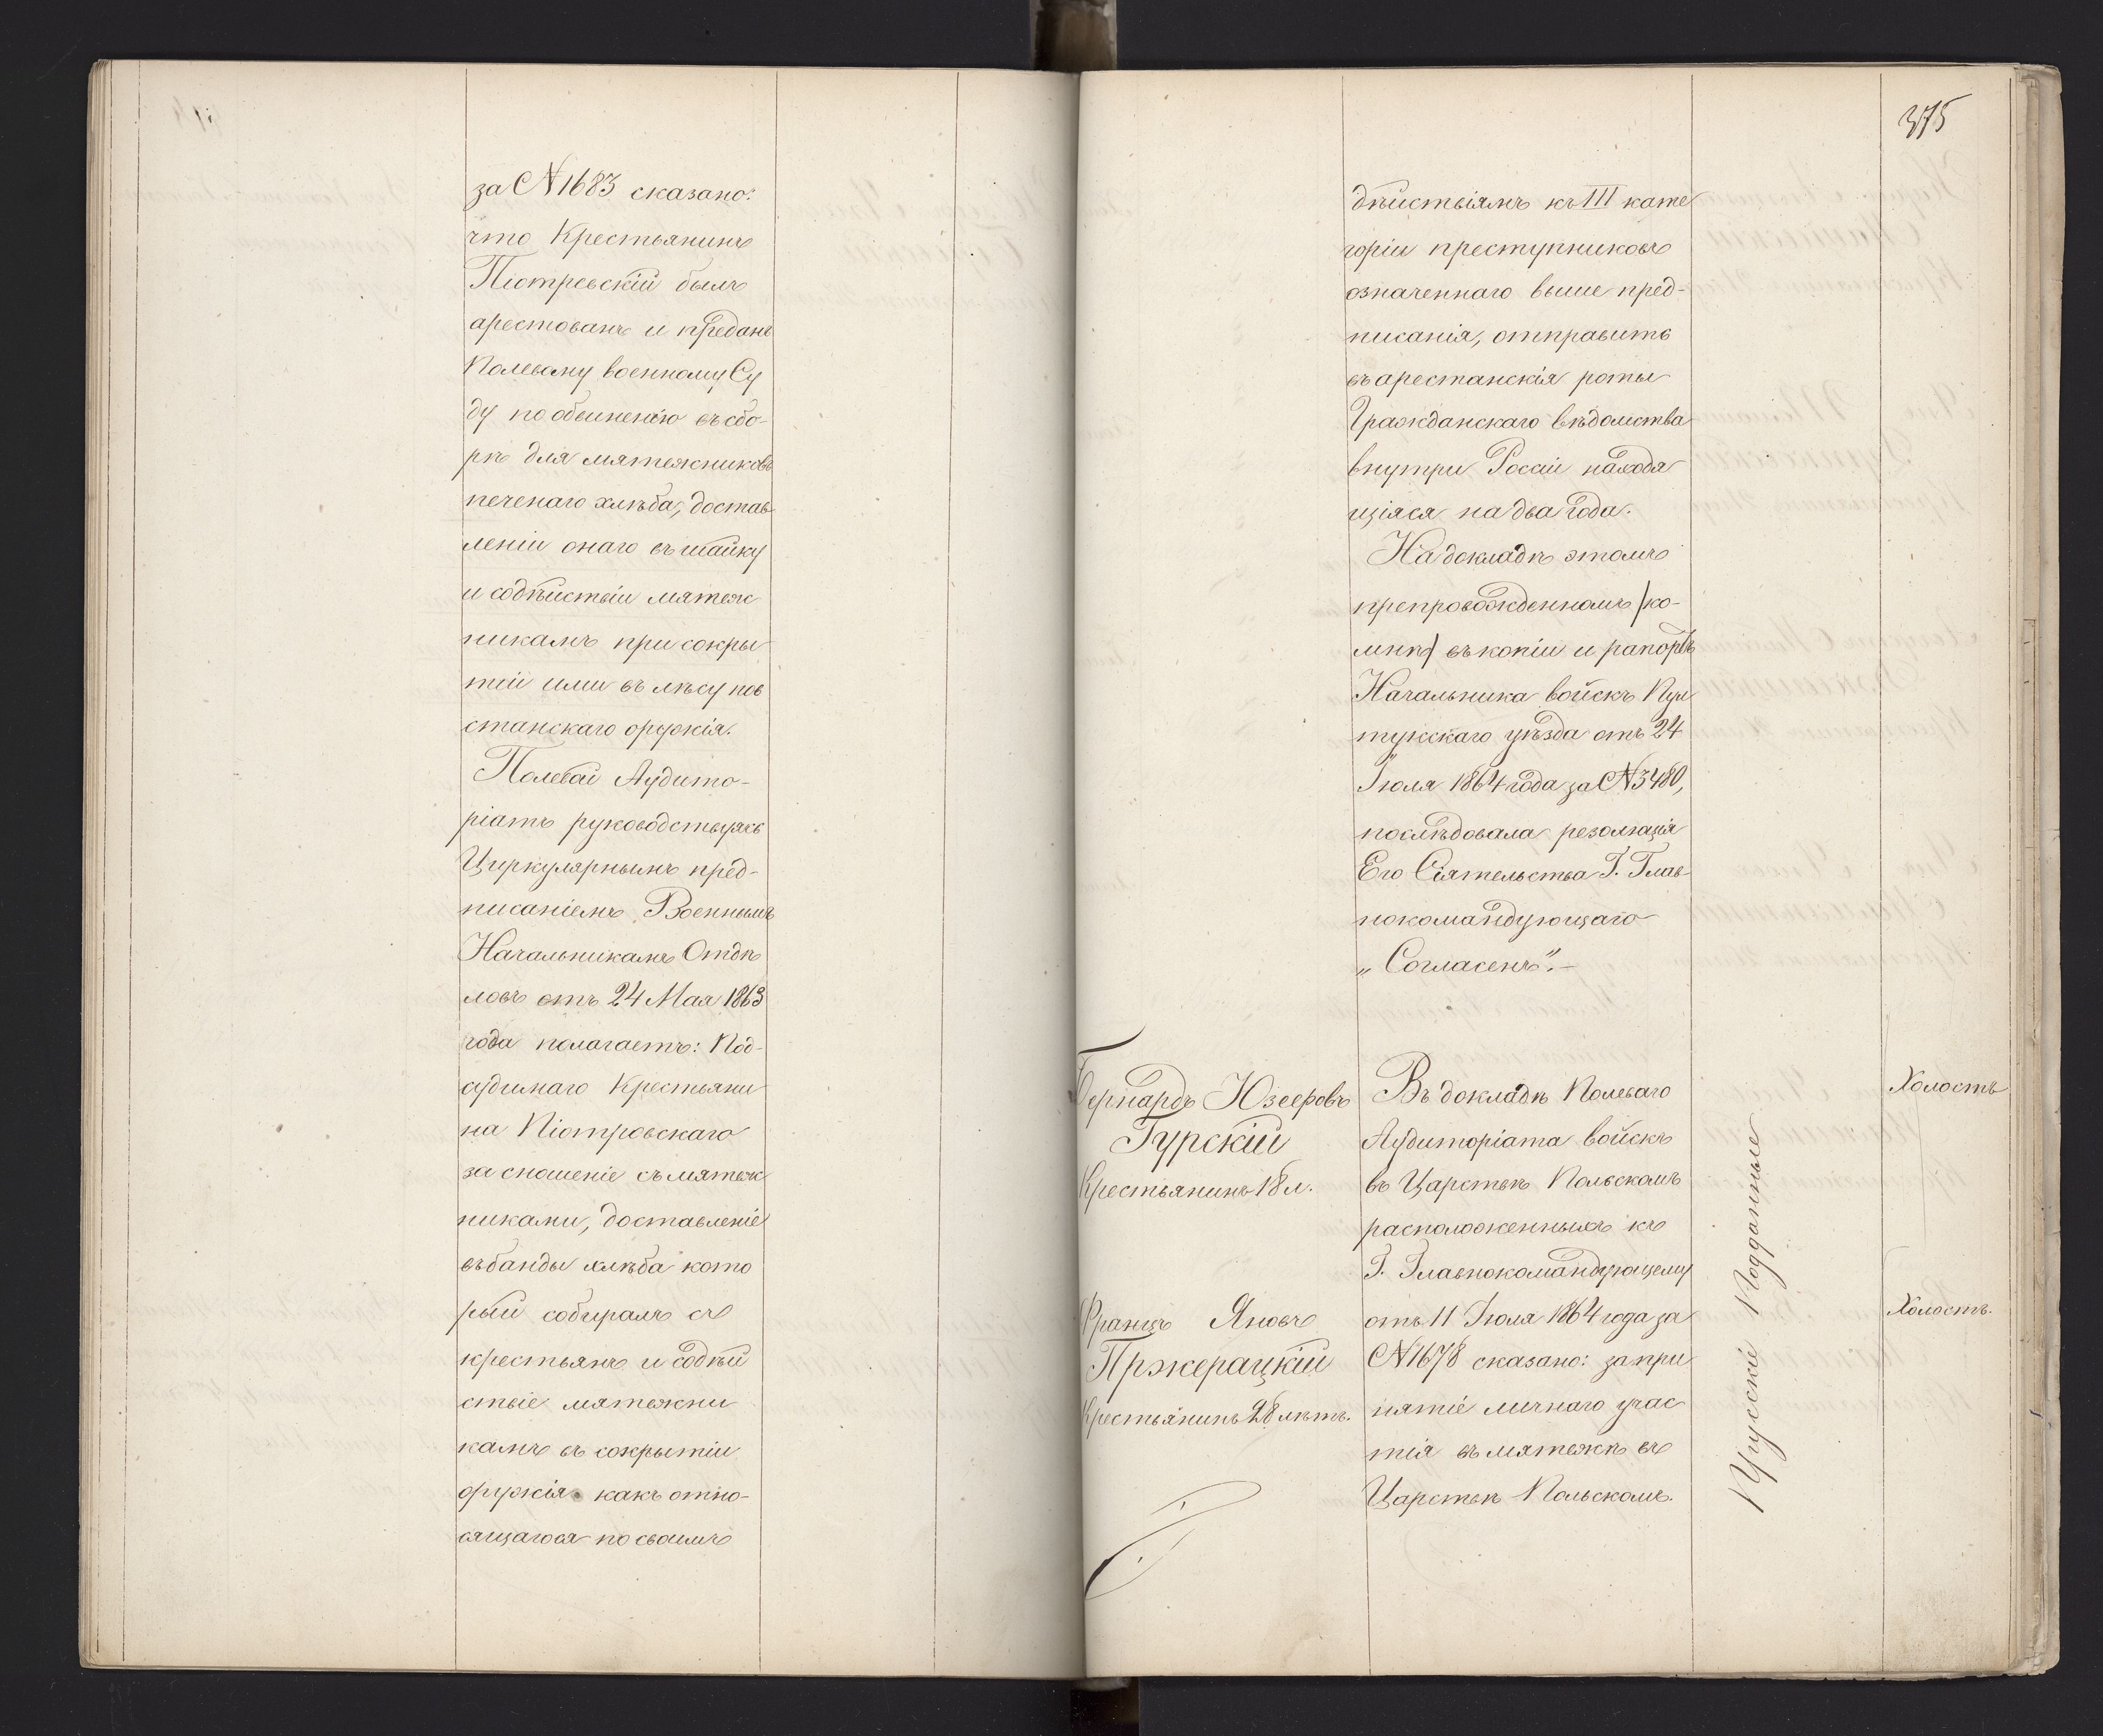 за №1683 сказано:
что Крестьянинъ
Піотревскій былъ
арестованъ и преданъ
Полевому военному Су
ду по обвиненію въ сбо-
рѣ для мятежниковъ
печенаго хлѣба, достав
леніи онаго въ шайку
и содѣйствіи мятеж
никамъ при сокры
тіи ими въ лѣсу пов
станскаго оружія.
Полевой Аудито-
ріатъ руководствуясь
Циркулярнымъ пред-
писаніемъ Военнымъ
Начальникамъ Отдѣ
ловъ отъ 24 Мая 1863
года полагаетъ: Под-
судимаго Крестьяни
на Піотровскаго
за сношеніе съ мятеж
никами, доставленіе
въ банды хлѣба кото
рый собиралъ съ
крестьянъ и содѣй
ствіе мятежни
камъ въ сокрытіи
оружія какъ отно-
сящагося по своимъ
375
дѣйствіямъ къ III кате
горіи преступниковъ
означеннаго выше пред-
писанія, отправить
въ арестанскія роты
Гражданскаго вѣдомства
внутри Россіи находя
щіяся на два года.
На докладѣ этомъ
препровожденномъ (ко-
мнѣ) въ копіи и рапортѣ
Начальника войскъ Пул
тускскаго уѣзда отъ 24
Іюля 1864 года за №3480,
послѣдовала резолюція
Его Сіятельства Г. Глав
нокомандующаго
„Согласенъ".—
Бернардъ Юзефовъ
Гурскій
Крестьянинъ 18 л.
Въ докладѣ Полеваго
Аудиторіата войскъ
въ Царствѣ Польскомъ
расположенныхъ къ
Г. Главнокомандующему
отъ 11 Іюля 1864 года за
№1678 сказано: за при
нятіе личнаго учас
тія въ мятежѣ въ
Царствѣ Польскомъ.
Францъ Яновъ
Пржерацкій
Крестьянинъ 28 лѣтъ.
Прусскіе Подданные
Холостъ
Холостъ.